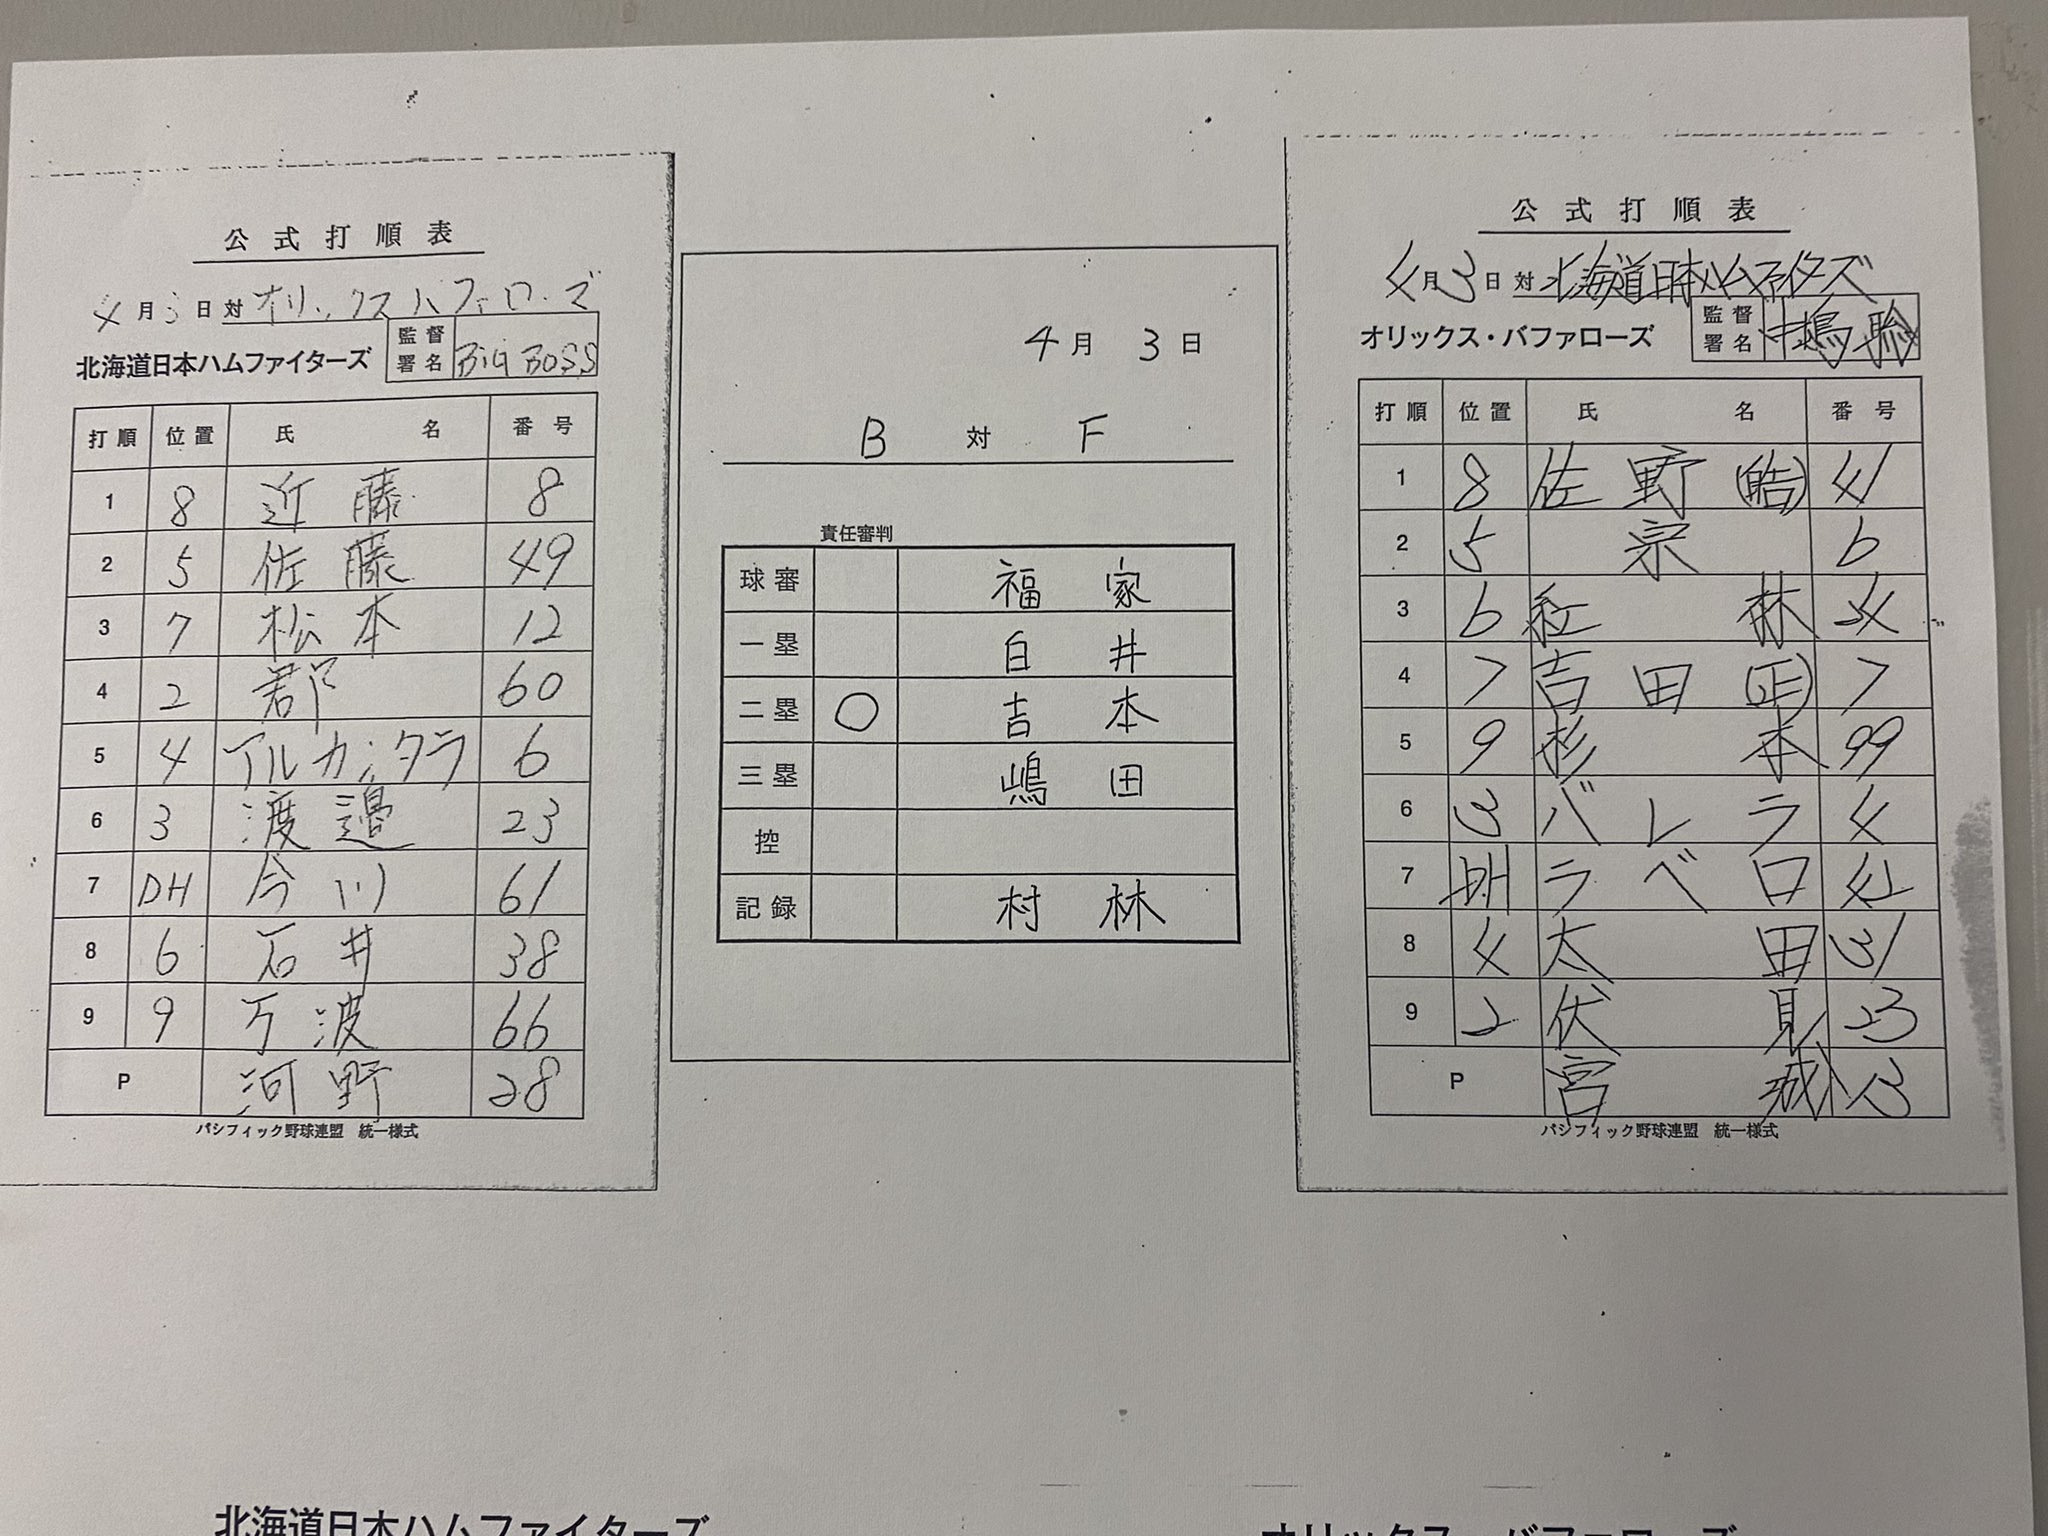 公式打順表
4月3日対オリックスバファローズ
北海道日本ハムファイターズ 監督署名 BIG BOSS
打順 位置 氏名 番号
1 8 近藤 8
2 5 佐藤 49
3 7 松本 12
4 2 郡 60
5 4 アルカンタラ 6
6 3 渡邉 23
7 DH 今川 61
8 6 石井 38
9 9 万波 66
P 河野 28
パシフィック野球連盟 統一様式
4月3日
B 対 F
責任審判
球審 福家
一塁 白井
二塁 ○ 吉本
三塁 嶋田
控
記録 村林
公式打順表
4月3日対北海道日本ハムファイターズ
オリックス・バファローズ 監督署名 中嶋聡
打順 位置 氏名 番号
1 8 佐野(皓) 41
2 5 宗 6
3 6 紅林 24
4 7 吉田(正) 7
5 9 杉本 99
6 3 バレラ 4
7 DH ラベロ 42
8 4 太田 31
9 2 伏見 23
P 宮城 13
パシフィック野球連盟 統一様式
北海道日本ハムファイターズ
オリックス・バファローズ